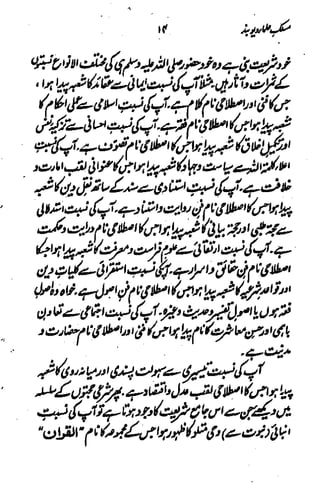 مسلک علماء دیوبند ۱۴
خود شریعت بنی ہے وہ خود حضور صلی اللہ علیہ وسلم ہی کی مختلف الانواع نسبتوں
کے ثمرات و آثار ہیں مثلاً آپ کی نسبت ایمانی سے عقائد کا شعبہ پیدا ہوا،
جس کا فنی اور اصطلاحی نام کلام ہے۔ آپ کی نسبت اسلامی سے عملی احکام کا
شعبہ پیدا ہوا جس کا اصطلاحی نام فقہ ہے۔ آپ کی نسبت احسانی سے تزکیہ نفس
اور تکمیل اخلاق کا شعبہ پیدا ہوا جس کا اصطلاحی نام تصوف ہے۔ آپ کی نسبت
اعلاء کلمۃ اللہ سے سیاست و جہاد کا شعبہ پیدا ہوا جس کا عنوانی لقب امارت و
خلافت ہے۔ آپ کی نسبت استنادی سے سند کے ساتھ نقل دین کا شعبہ
پیدا ہوا جس کا اصطلاحی نام فن روایت و اسناد ہے۔ آپ کی نسبت استدلالی
سے حجت طلبی اور حجت بیانی کا شعبہ پیدا ہوا جس کا اصطلاحی نام درایت و حکمت
ہے۔ آپ کی نسبت ارتقائی سے علوم فراست و معرفت کا شعبہ پیدا ہوا جس کا
اصطلاحی نام فن حقائق و اسرار ہے۔ آپ کی نسبت استقرائی سے کلیات دین
اور قواعد شرعیہ کا شعبہ پیدا ہوا جس کا اصطلاحی نام فن اصول ہے۔ خواہ وہ اصول
فقہ ہوں یا اصول تفسیر و حدیث وغیرہ۔ آپ کی نسبت اجتماعی سے تعاون
باہمی اور حسن معاشرت کا نام پیدا ہوا جس کا فنی اور اصطلاحی نام حضارت و
مدنیت ہے۔
آپ کی نسبت تیسیری سے سہولت پسندی اور میانہ روی کا شعبہ
پیدا ہوا جس کا اصطلاحی لقب عدل و اقتصاد ہے۔ پھر شرعی حجتوں کے سلسلہ
میں دیکھئے جن سے اس جامع شریعت کا وجود ہوتا ہے تو آپ کی نسبت
انبائی (نبوت سے) وحی متلو کا ظہور ہوا جس کے مجموعہ کا نام "القرآن"